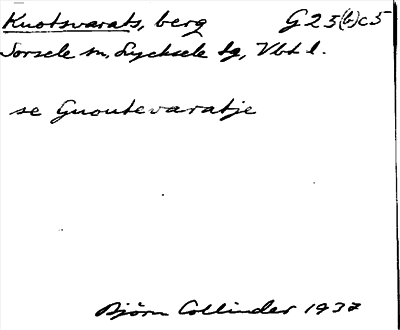 Knotsvarats, berg G23(b)c5
Sorsele sn, Lycksele lg, Vbtl.
se Gnoutevaratje
Björn Collinder 1937